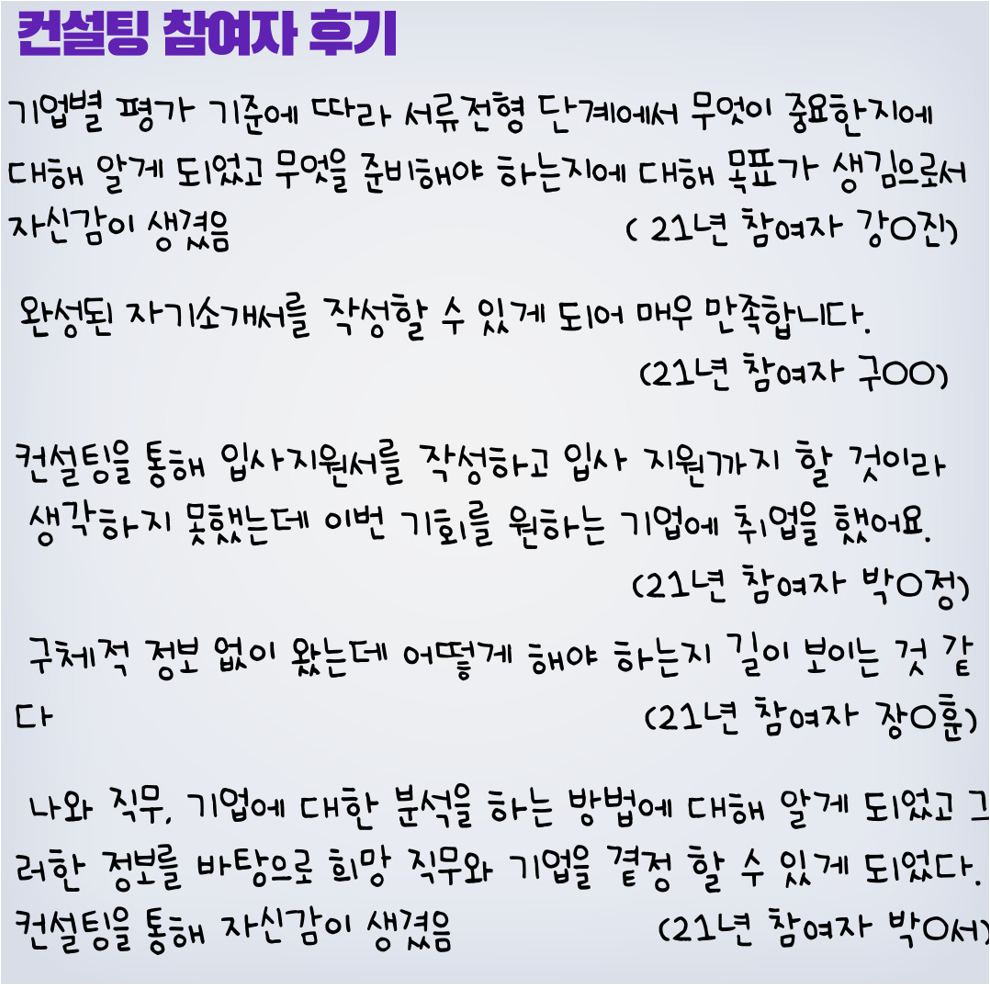 컨설팅 참여자 후기
기업별 평가 기준에 따라 서류전형 단계에서 무엇이 중요한지에
대해 알게 되었고 무엇을 준비해야 하는지에 대해 목표가 생김으로서
자신감이 생겼음 ( 21년 참여자 강O진)
완성된 자기소개서를 작성할 수 있게 되어 매우 만족합니다.
(21년 참여자 구OO)
컨설팅을 통해 입사지원서를 작성하고 입사 지원까지 할 것이라
생각하지 못했는데 이번 기회를 원하는 기업에 취업을 했어요.
(21년 참여자 박O정)
구체적 정보 없이 왔는데 어떻게 해야 하는지 길이 보이는 것 같
다 (21년 참여자 장O훈)
나와 직무, 기업에 대한 분석을 하는 방법에 대해 알게 되었고 그
러한 정보를 바탕으로 희망 직무와 기업을 곁정 할 수 있게 되었다.
컨설팅을 통해 자신감이 생겼음 (21년 참여자 박O서)